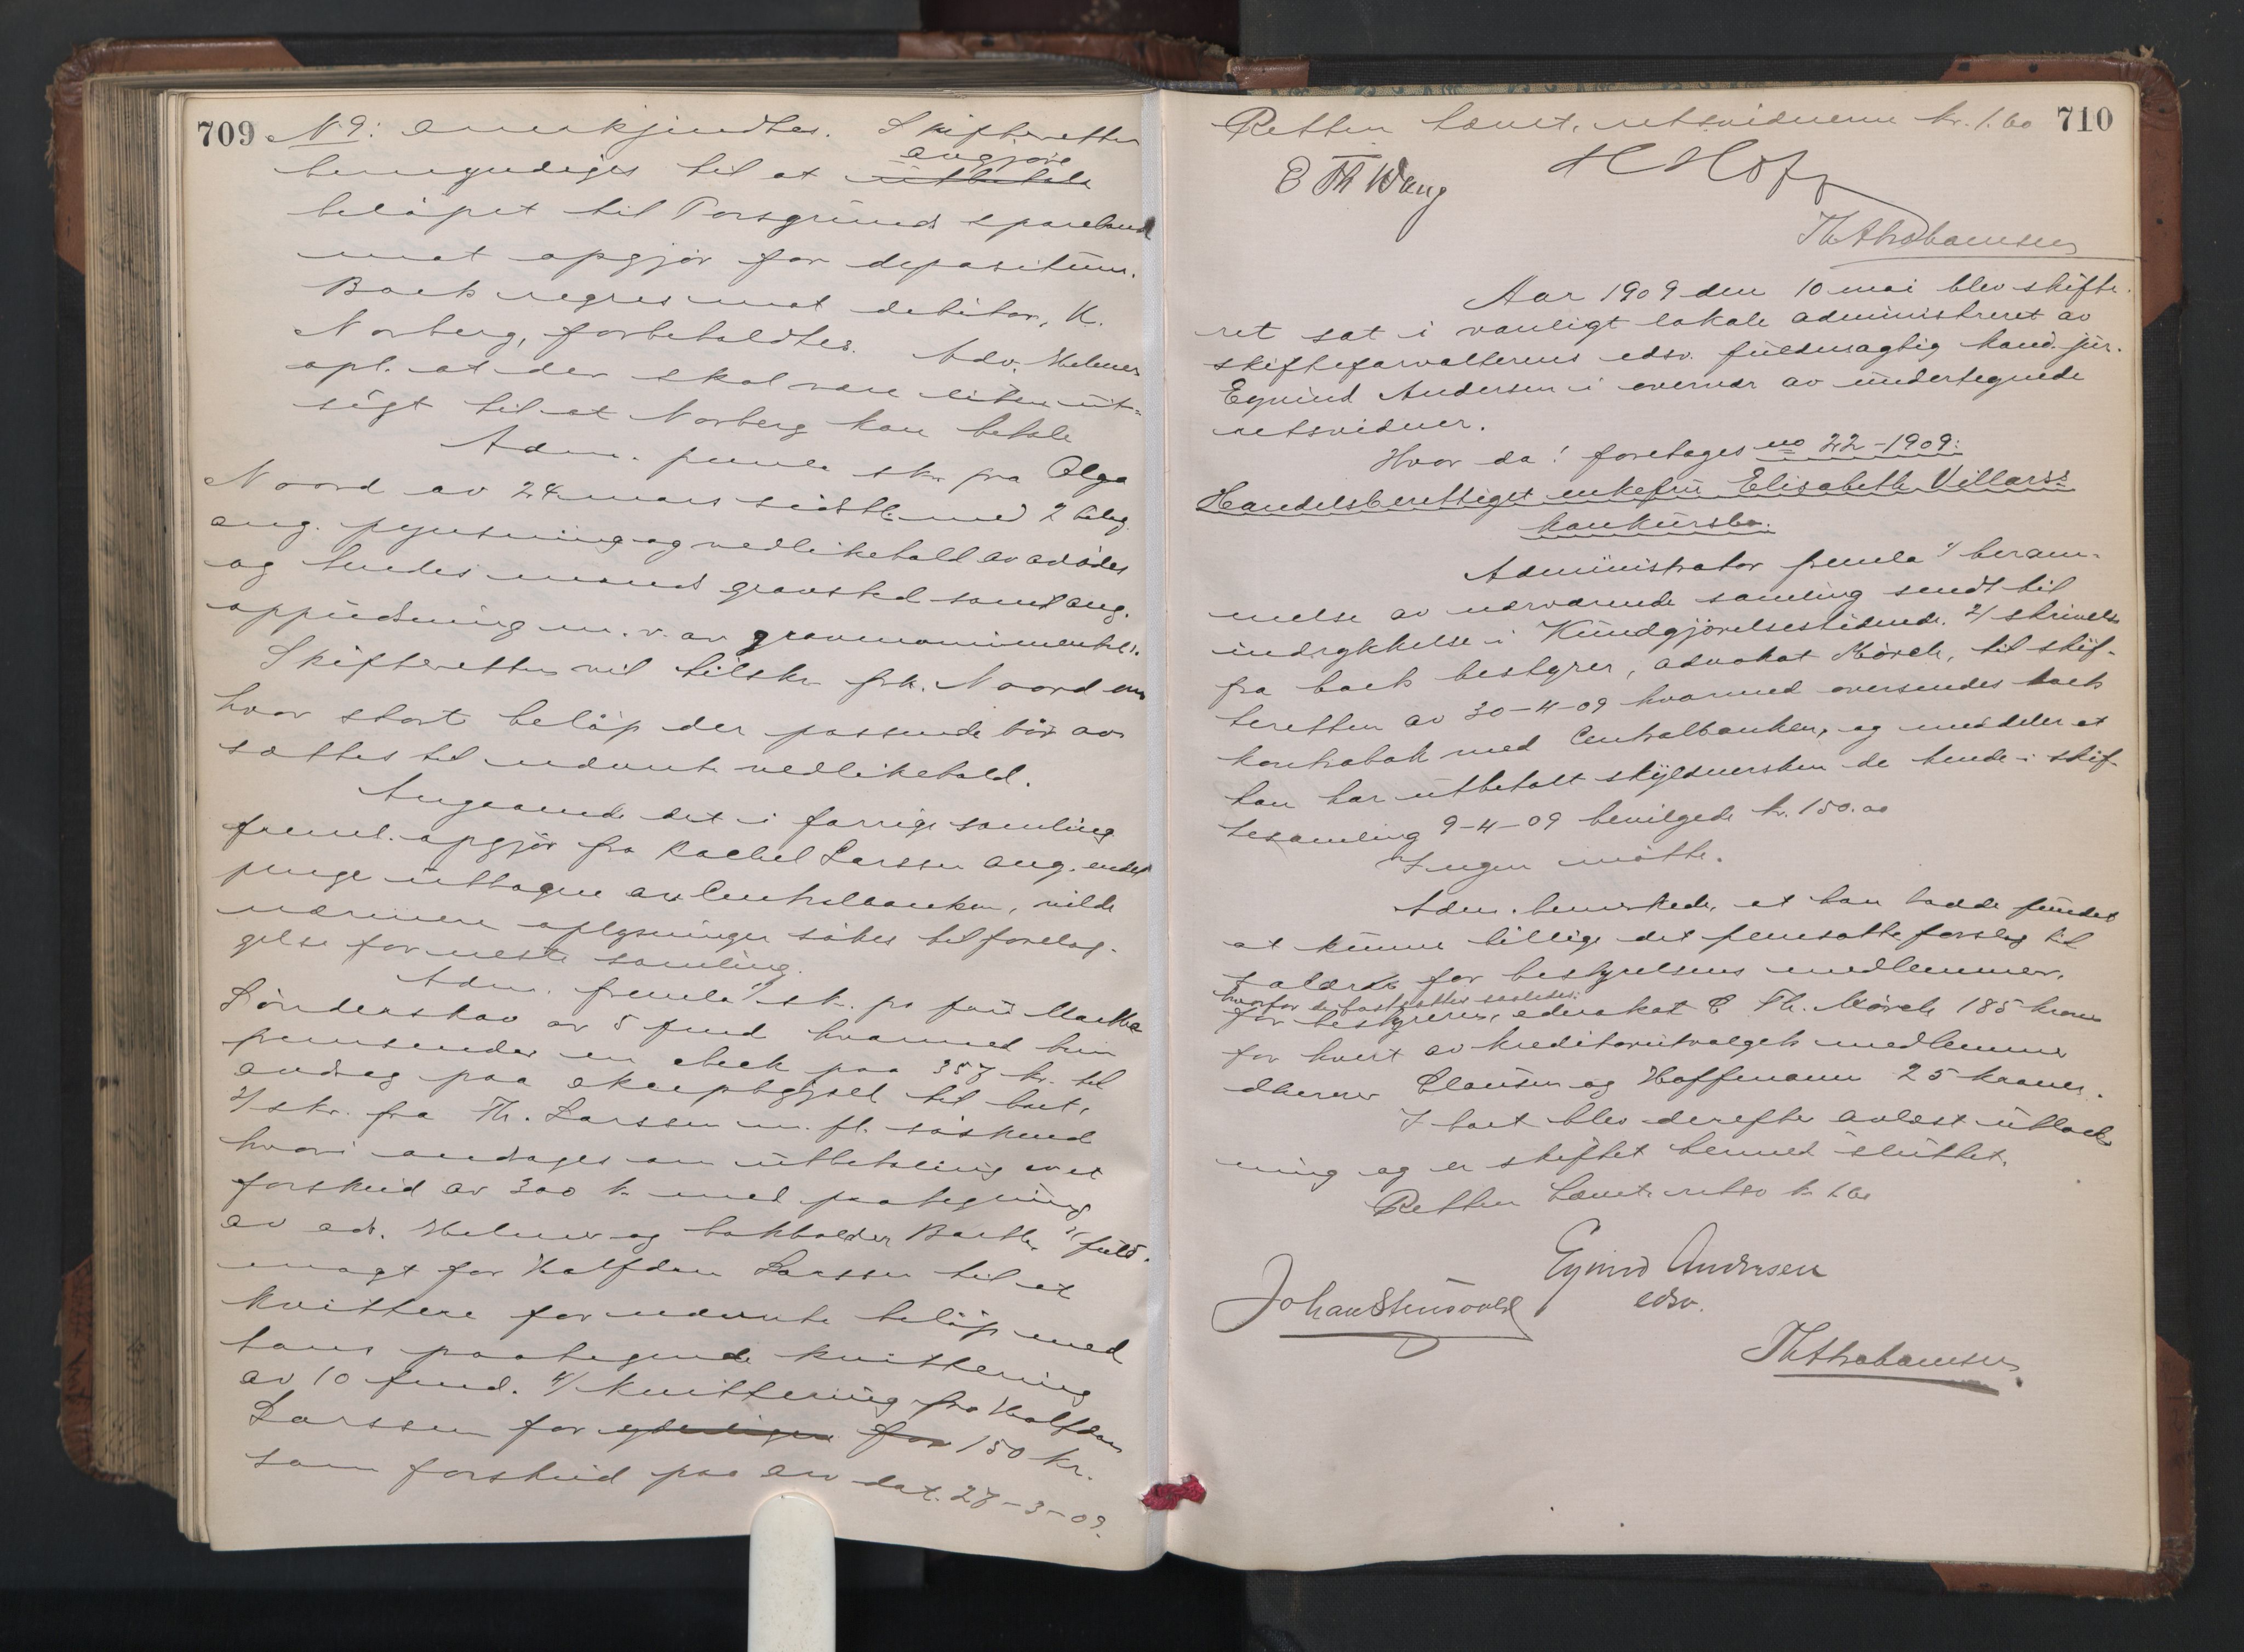 709
N. 9: anerkjendtes. Skifteretten
bemyndiges til at utbetale avgjøre
beløpet til Porsgrunds sparebank
mot opgjør for depositum.
Boets regres mot debitor, K.
Norberg, forbeholdtes. Adv. Helmer
opl. at der skal være liten ut-
sigt til at Norberg kan betale
Adm. freml. skr. fra Olga
Noord av 24 mars sidstl. med 2 bilag
ang. pyntning og vedlikehold av avdødes
og hendes mands gravsted samt ang.
oppudsning m. v. av gravmonumentet.
Skifteretten vil tilskr. frk. Noord om
hvor stort beløp der passende bør av-
sættes til nævnte vedlikehold.
Angaaende det i forrige samling
freml. opgjør fra Rachel Larssen ang. endel
penge uttagne av Centralbanken, vilde
nærmere oplysninger søkes til forelæg-
gelse for neste samling.
Adm. fremla 1/ sk. fra fru Martha
Sönderskov av 5 fund hvormed hun
fremsender en check paa 357 kr. til
avdrag paa eksceptgjæld til boet,
2/ skr. fra Th. Larssen m. fl. søskend
hvori andrages om utbetaling av et
forskud av 300 kr. med paategning
av adv. Helmer og bokholder Barth 3/ fuld-
magt for Halfdan Larssen til at
kvittere for nævnte beløp med
hans paategnede kvittering
av 10 fund. 4/ kvittering fra Halfdan
Larssen for yderligere for 150 kr.
som forskud paa arv dat. 27-3-09.
710
Retten hævet, retsvidnerne kr. 1.60
H Hoff
E Th Wang
Th Abrahamsen
Aar 1909 den 10 mai blev skifte-
ret sat i vanligt lokale administreret av
skifteforvalterens edsv. fuldmægtig kand. jur.
Eyvind Andersen i overvær av undertegnede
retsvidner.
Hvor da! foretages no 22-1909:
Handelsberettiget enkefru Elisabeth Villars's
konkursbo.
Administrator fremla 1/ beram-
melse av nærværende samling sendt til
indrykkelse i Kundgjørelsestidende. 2/ skrivelse
fra boets bestyrer, advokat Mörch, til skif-
teretten av 30-4-09 hvormed oversendes boets
kontrabok med Centralbanken, og meddeler at
han har utbetalt skyldnersken de hende i skif-
tesamling 9-4-09 bevilgede kr. 150.00
Ingen møtte.
Adm. bemerkede, at han hadde fundet
at kunne billige det fremsatte forslag til
salærer for bestyrelsens medlemmer,
hvorfor de fastsattes saaledes:
for bestyreren, advokat C Th. Mörch 185 kroner
for hvert av kreditorutvalgets medlemmer
dherrer Clausen og Hoffmann 25 kroner.
I boet blev derefter avlæst utlod-
ning og er skiftet hermed sluttet.
Retten hævet. retsv kr 1.60
Eyvind Andersen
edsv.
Johan Stensvold
Th Abrahamsen